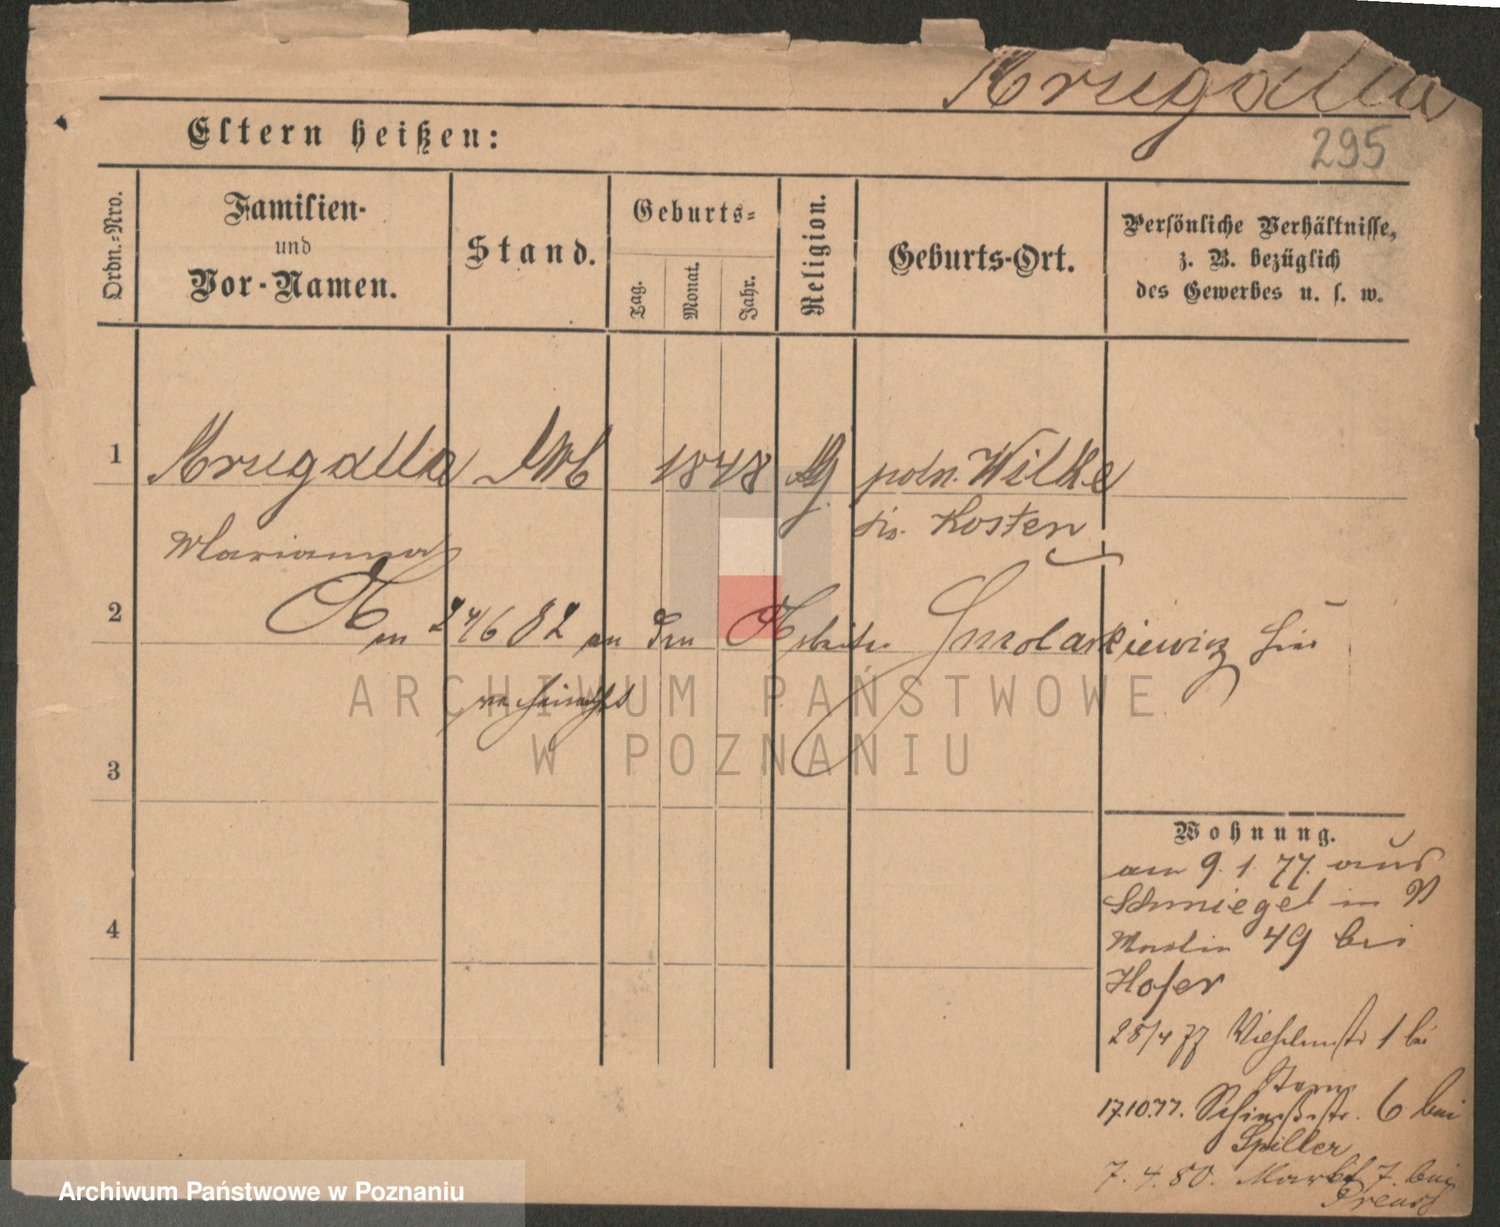 Krugalla
295
Eltern heißen:
Ordn.-Nro.
Familien-
und
Vor-Namen.
Stand.
Geburts-
Tag.
Monat.
Jahr.
Religion.
Geburts-Ort.
Persönliche Verhältnisse,
z. B. bezüglich
des Gewerbes u. s. w.
1 Krugalla 1848 poln. Wilke
Marianna Kosten
2 Am 24/6 82 an den Arbeiter Smolarkiewicz hier
verheirathet
ARCHIWUM PAŃSTWOWE
W POZNANIU
3
Wohnung.
am 9. 1. 77. aus
Schmiegel in
4
Martin 49 bei
Hofer
28/4 77 Wilhelmstr 1 bei
Stern
17.10.77. 6 bei
Spiller
7. 4. 80. Markt 7. bei
Preuss
Archiwum Państwowe w Poznaniu